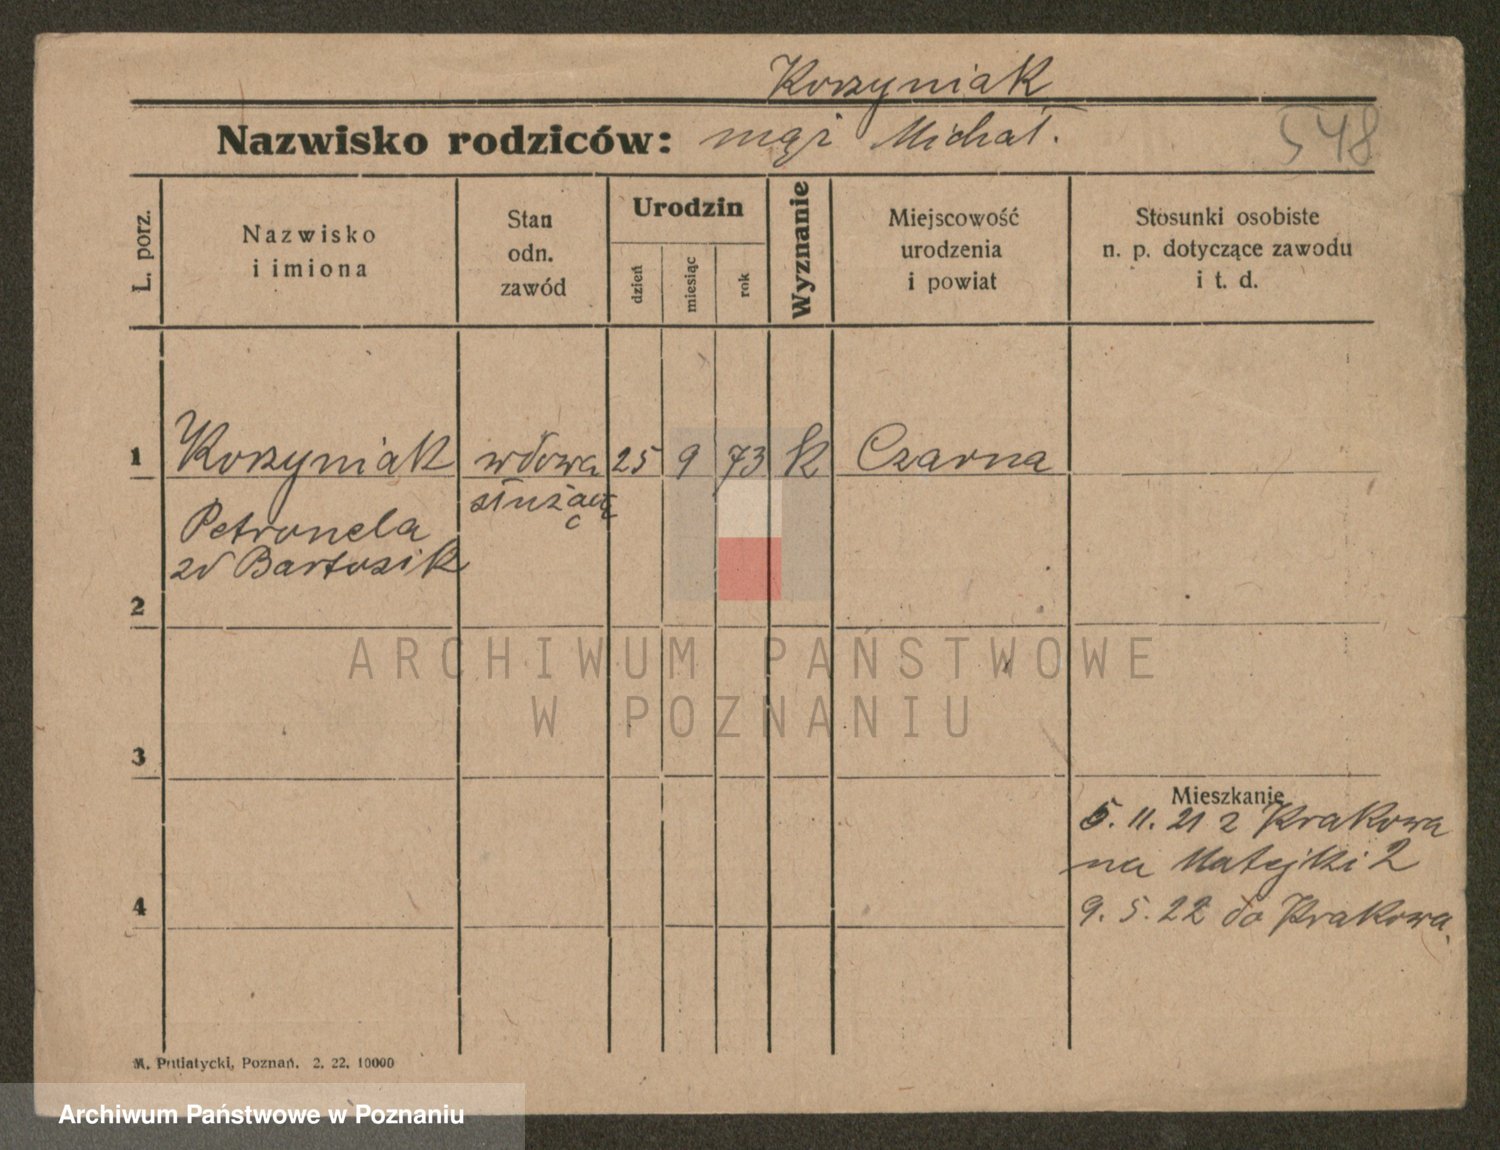 Korzyniak
Nazwisko rodziców: mąż Michał.
548
L. porz.
Nazwisko
i imiona
Stan
odn.
zawód
Urodzin
dzień
miesiąc
rok
Wyznanie
Miejscowość
urodzenia
i powiat
Stosunki osobiste
n. p. dotyczące zawodu
i t. d.
1 Korzyniak wdowa 25 9 73 k Czarna
służącą
c
Petronela
zd Bartosik
2
ARCHIWUM PAŃSTWOWE
W POZNANIU
3
Mieszkanie
5. 11. 21 z Krakowa
na Matejki 2
4
9. 5. 22 do Krakowa.
M. Putiatycki, Poznań. 2. 22. 10000
Archiwum Państwowe w Poznaniu